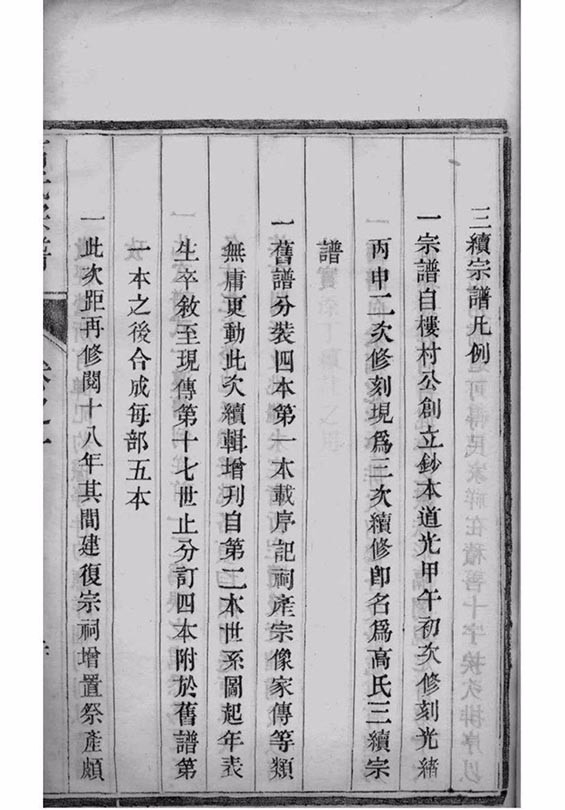 三續宗譜凡例
一宗譜自樓村公創立鈔本道光甲午初次修刻光緒
丙申二次修刻現爲三次續修卽名爲高氏三續宗
譜
一舊譜分裝四本第一本載序記祠產宗像家傳等類
無庸更動此次續輯增刊自第二本世系圖起年表
生卒敘至現傳第十七世止分訂四本附於舊譜第
一本之後合成每部五本
一此次距再修閱十八年其間建復宗祠增置祭產頗